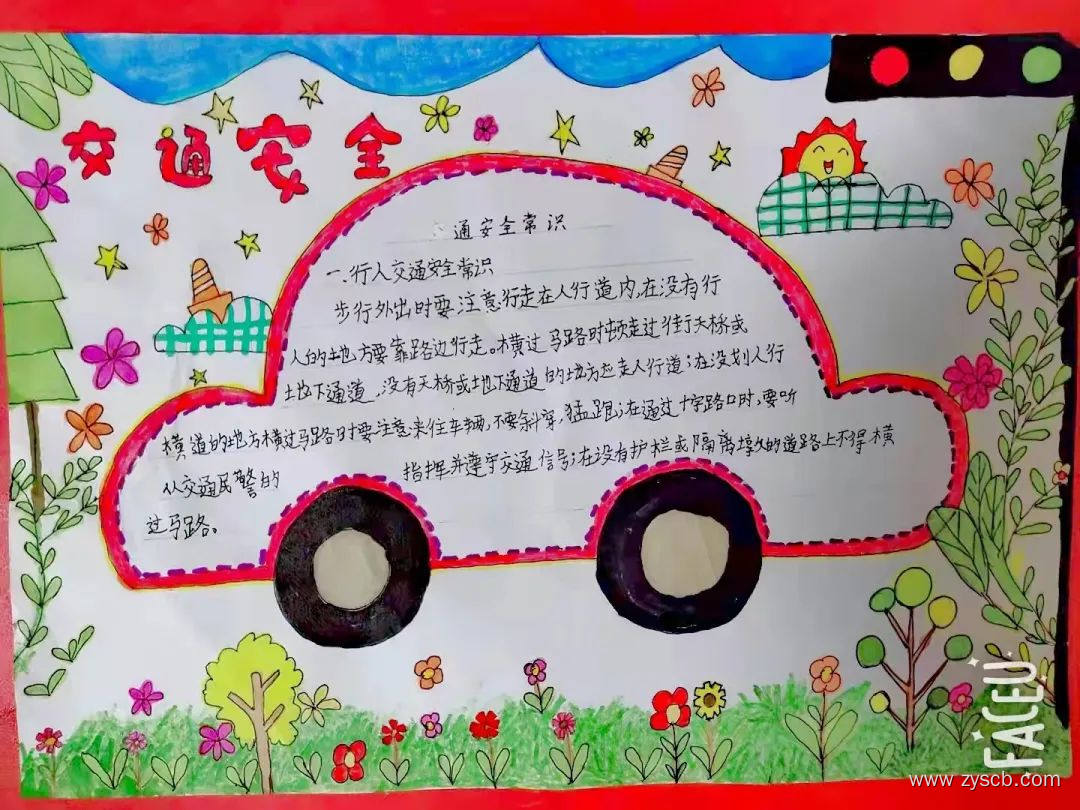 交通安全
交通安全常识
一.行人交通安全常识
步行外出时要注意行走在人行道内,在没有行
人的地方要靠路边行走。横过马路时须走过街天桥或
地下通道,没有天桥或地下通道的地方应走人行道;在没划人行
横道的地方横过马路时要注意来往车辆,不要斜穿,猛跑;在通过十字路口时,要听
从交通民警的 指挥并遵守交通信号;在没有护栏或隔离墩的道路上不得横
过马路。
FACEU
www.zyscb.com